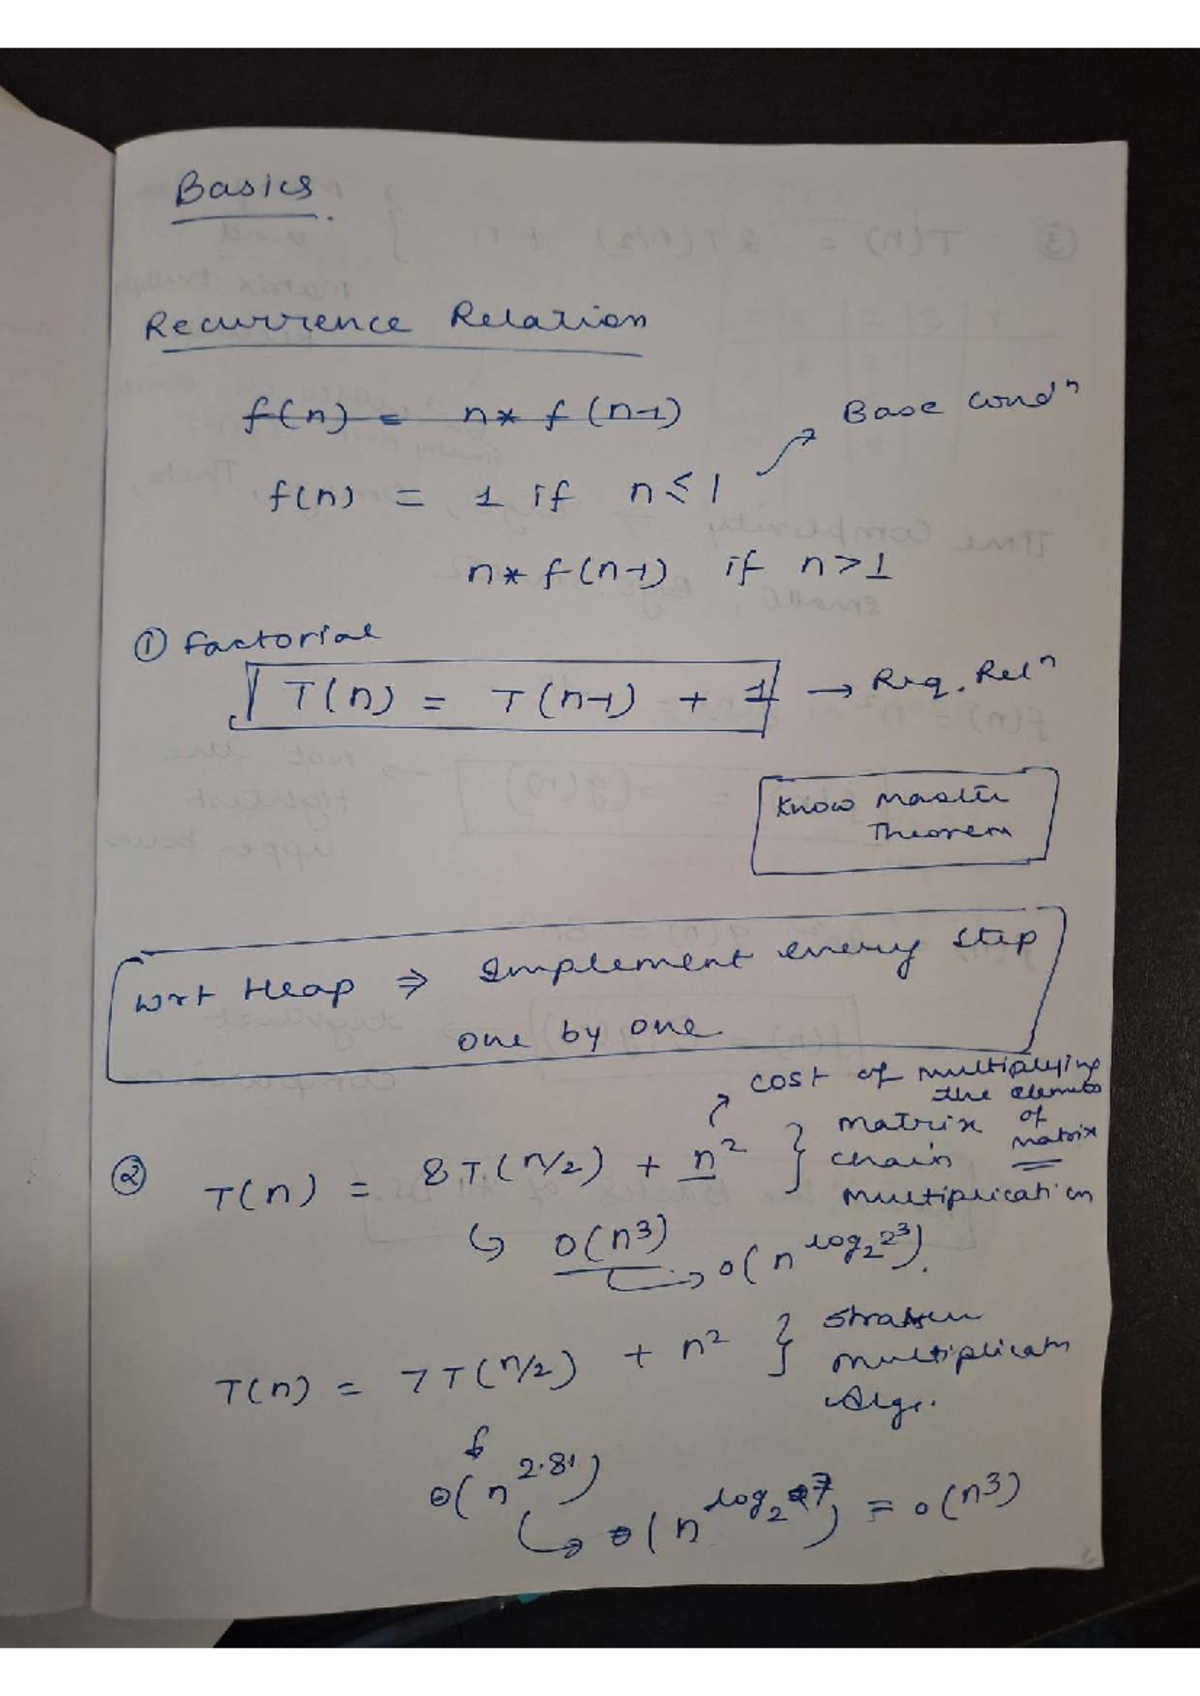 Basics.
Recurrence Relation
f(n) = n* f(n-1)
Base condⁿ
f(n) = 1 if n ≤ 1
n* f(n-1) if n > 1
① factorial
T(n) = T(n-1) + 1 → Req. Relⁿ
Know Master
Theorem
wrt Heap ⇒ Implement every step
one by one.
cost of multiplying
the elements
of
matrix
② T(n) = 8T(n/2) + n² } matrix
chain
multiplication
↳ O(n³) → O(n^log₂2³).
T(n) = 7T(n/2) + n² } Strassen
multiplicatn
Algo.
O(n^2.81)
↳ O(n^log₂7) = O(n³)